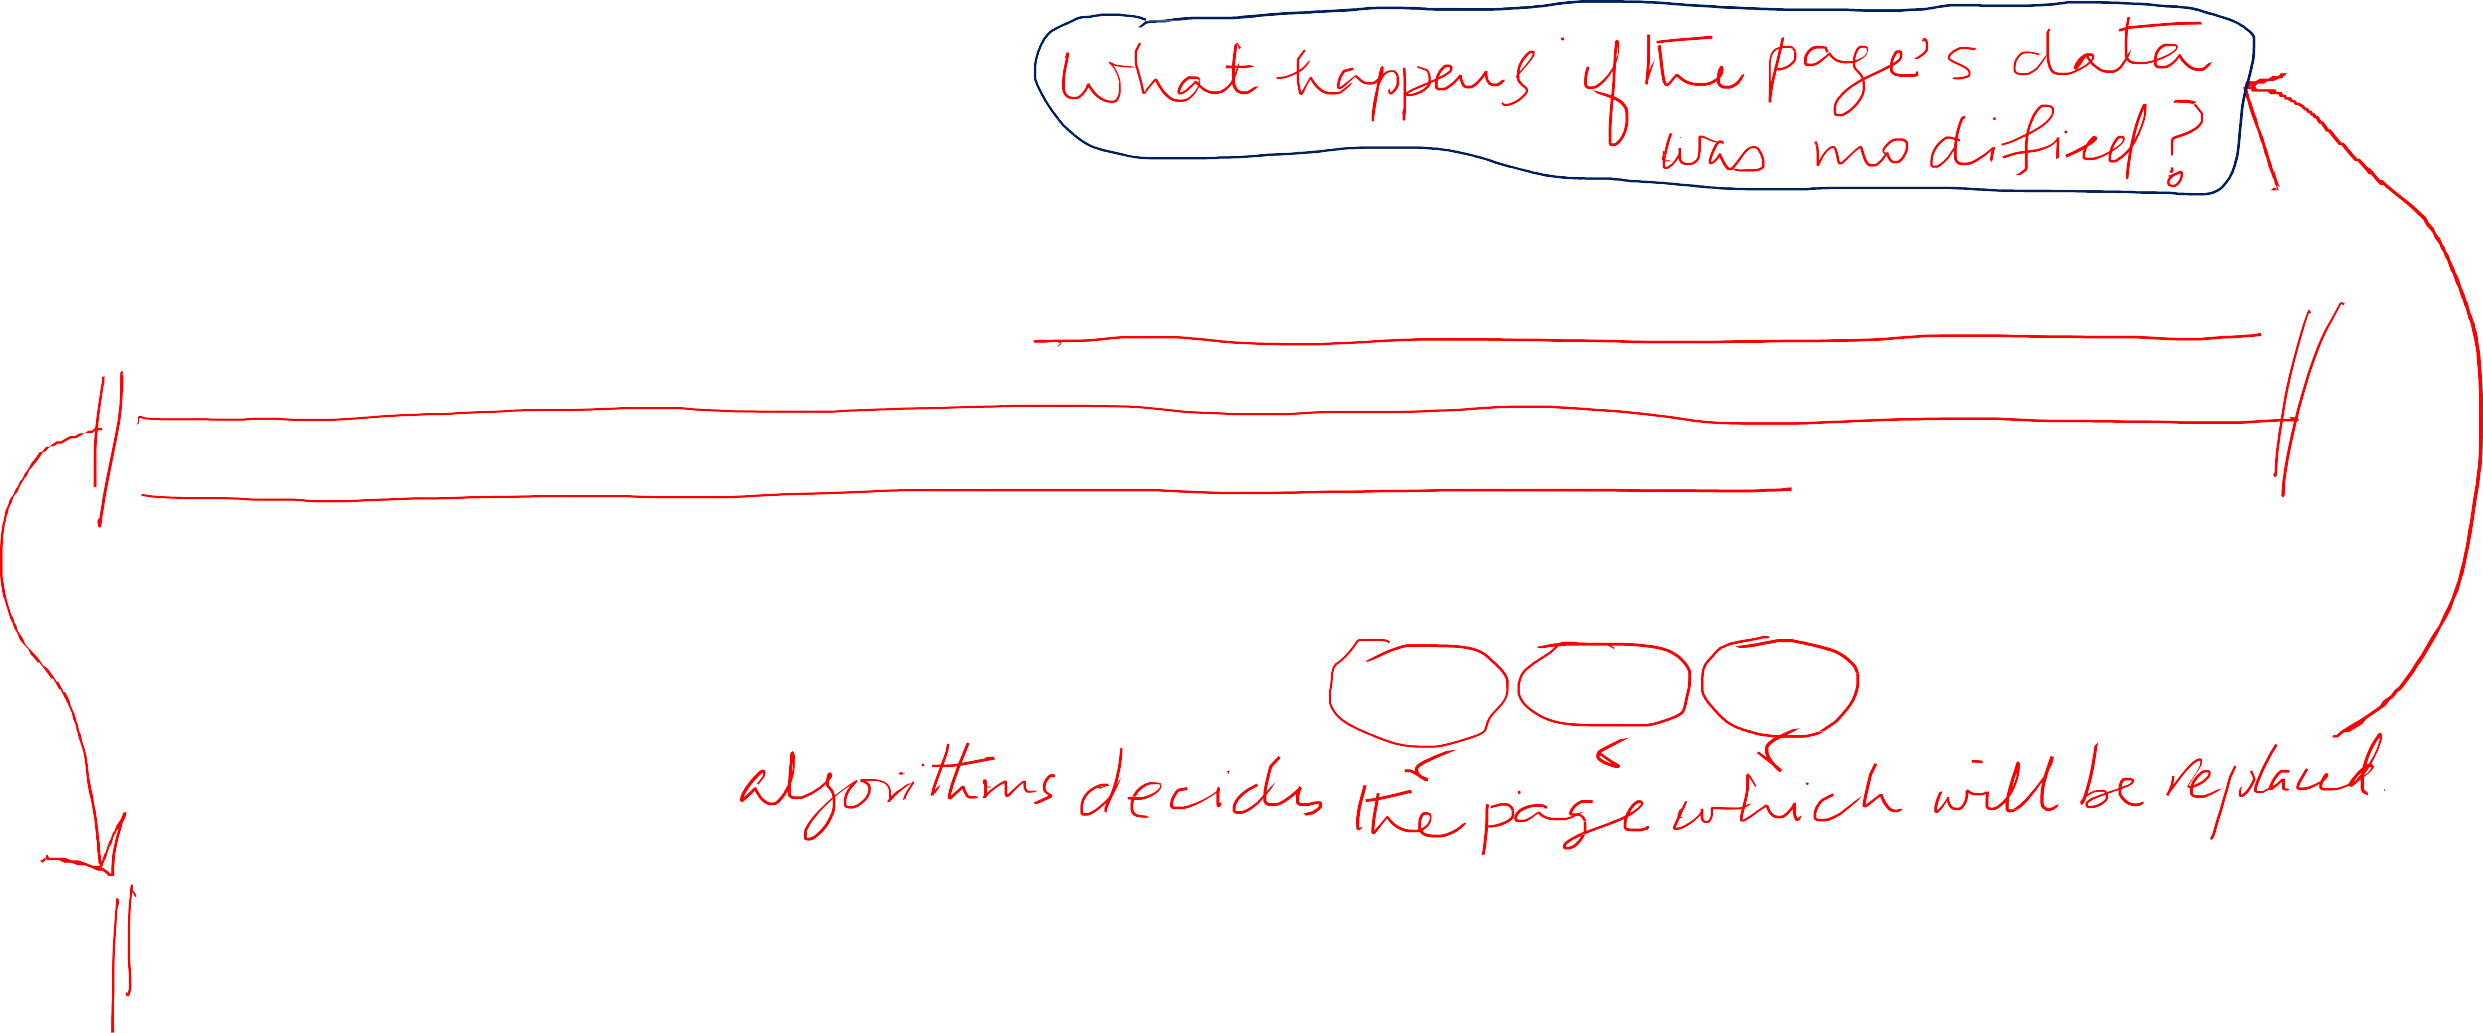 What happens if the page's data
was modified?
algorithms decides the page which will be replaced.